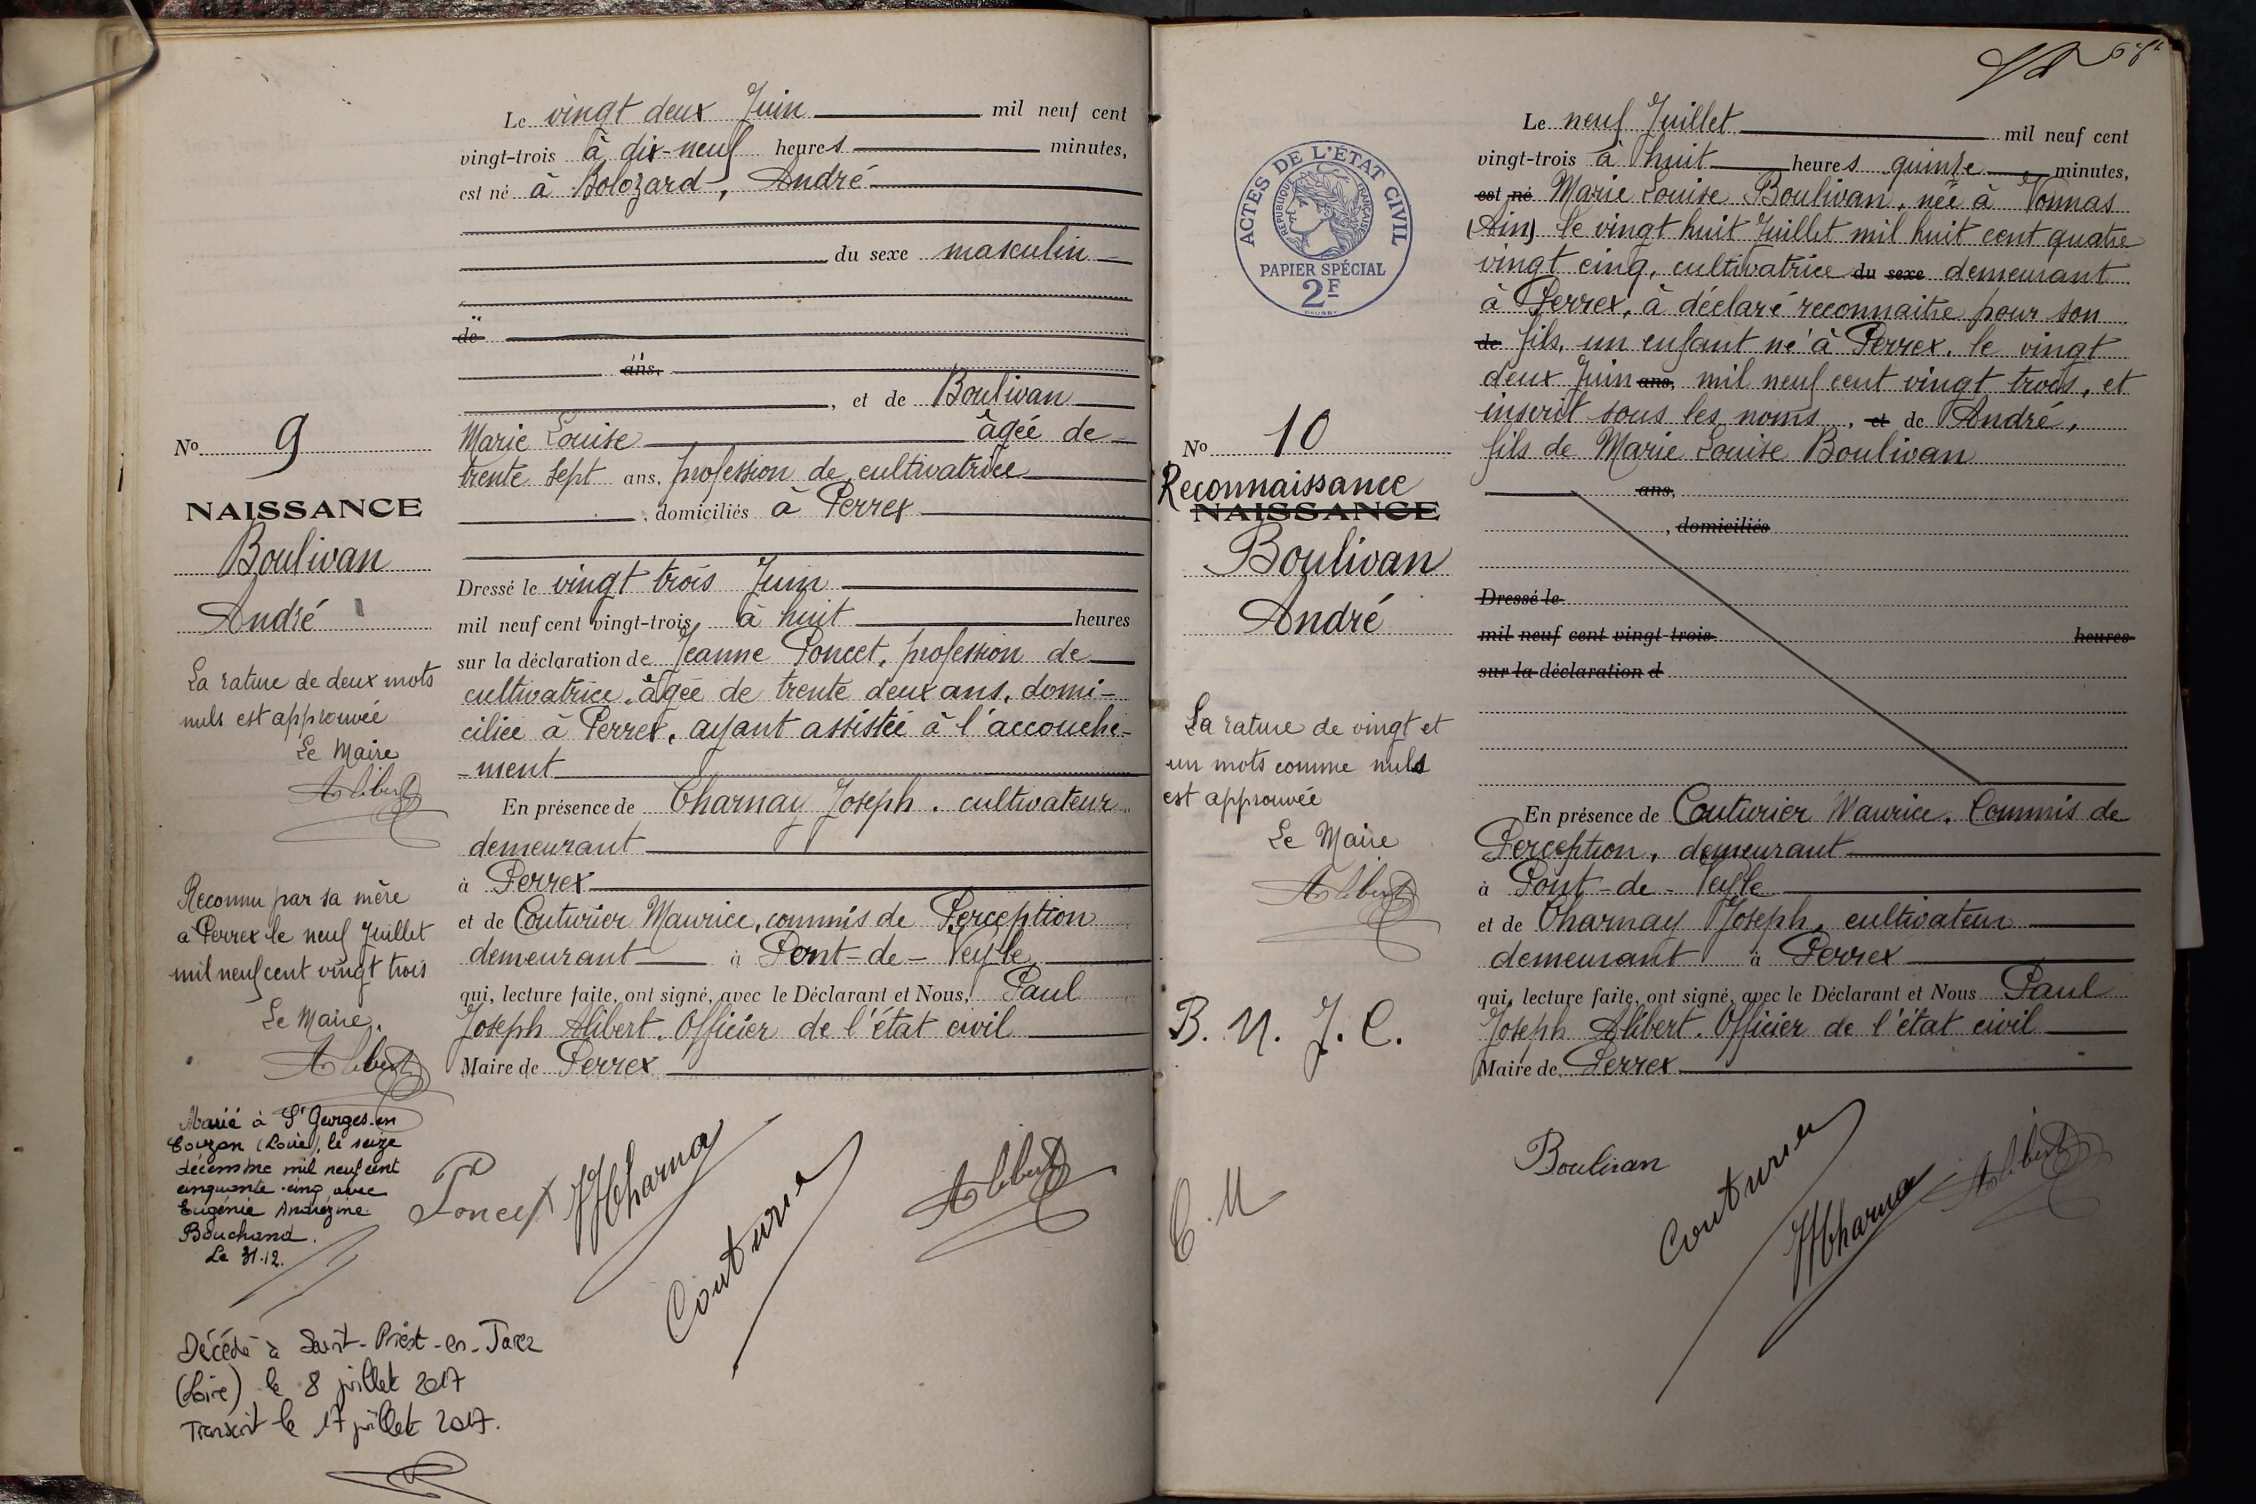 Le vingt deux Juin mil neuf cent
vingt-trois à dix-neuf heures minutes,
est né à Bolozard, André
du sexe masculin
de
ans,
, et de Boulivan
Marie Louise âgée de
trente sept ans, profession de cultivatrice
, domiciliés à Perrex
Dressé le vingt trois Juin
mil neuf cent vingt-trois à huit heures
sur la déclaration de Jeanne Poncet, profession de
cultivatrice, âgée de trente deux ans, domi-
ciliée à Perrex, ayant assistée à l'accouche-
-ment
En présence de Charnay Joseph, cultivateur
demeurant
à Perrex
et de Couturier Maurice, commis de Perception
demeurant à Pont-de-Veyle
qui, lecture faite, ont signé, avec le Déclarant et Nous, Paul
Joseph Alibert, Officier de l'état civil
Maire de Perrex
Poncet JJCharna Couturie Alibert
No 9
NAISSANCE
Boulivan
André
La rature de deux mots
nuls est approuvée
Le Maire
Alibert
Reconnu par sa mère
à Perrex le neuf Juillet
mil neuf cent vingt trois
Le Maire.
Alibert
Marié à St Georges-en
Couzan (Loire), le seize
décembre mil neuf cent
cinquante-cinq avec
Eugénie Andrézine
Bouchand.
Le 31.12.
Décédé à Saint-Priest-en-Jarez
(Loire) le 8 juillet 2017
Transcrit le 17 juillet 2017.
Le neuf Juillet mil neuf cent
vingt-trois à huit heures quinze minutes,
est né Marie Louise Boulivan, née à Vonnas
(Ain) le vingt huit Juillet mil huit cent quatre
vingt cinq, cultivatrice du sexe demeurant
à Perrex, à déclaré reconnaitre pour son
de fils, un enfant né à Perrex, le vingt
deux Juin ans, mil neuf cent vingt trois, et
inscrit sous les noms , et de André,
fils de Marie Louise Boulivan
ans,
, domiciliés
Dressé le
mil neuf cent vingt-trois heures
sur la déclaration d
En présence de Couturier Maurice, Commis de
Perception, demeurant
à Pont-de-Veyle
et de Charnay Joseph, cultivateur
demeurant à Perrex
qui, lecture faite, ont signé, avec le Déclarant et Nous Paul
Joseph Alibert, Officier de l'état civil
Maire de Perrex
Boulivan Couturie JJCharna Alibert
ACTES DE L'ÉTAT CIVIL
RÉPUBLIQUE FRANÇAISE
PAPIER SPÉCIAL
2F
No 10
Reconnaissance
NAISSANCE
Boulivan
André
La rature de vingt et
un mots comme nuls
est approuvée
Le Maire
Alibert
B. M. J. C.
C. M